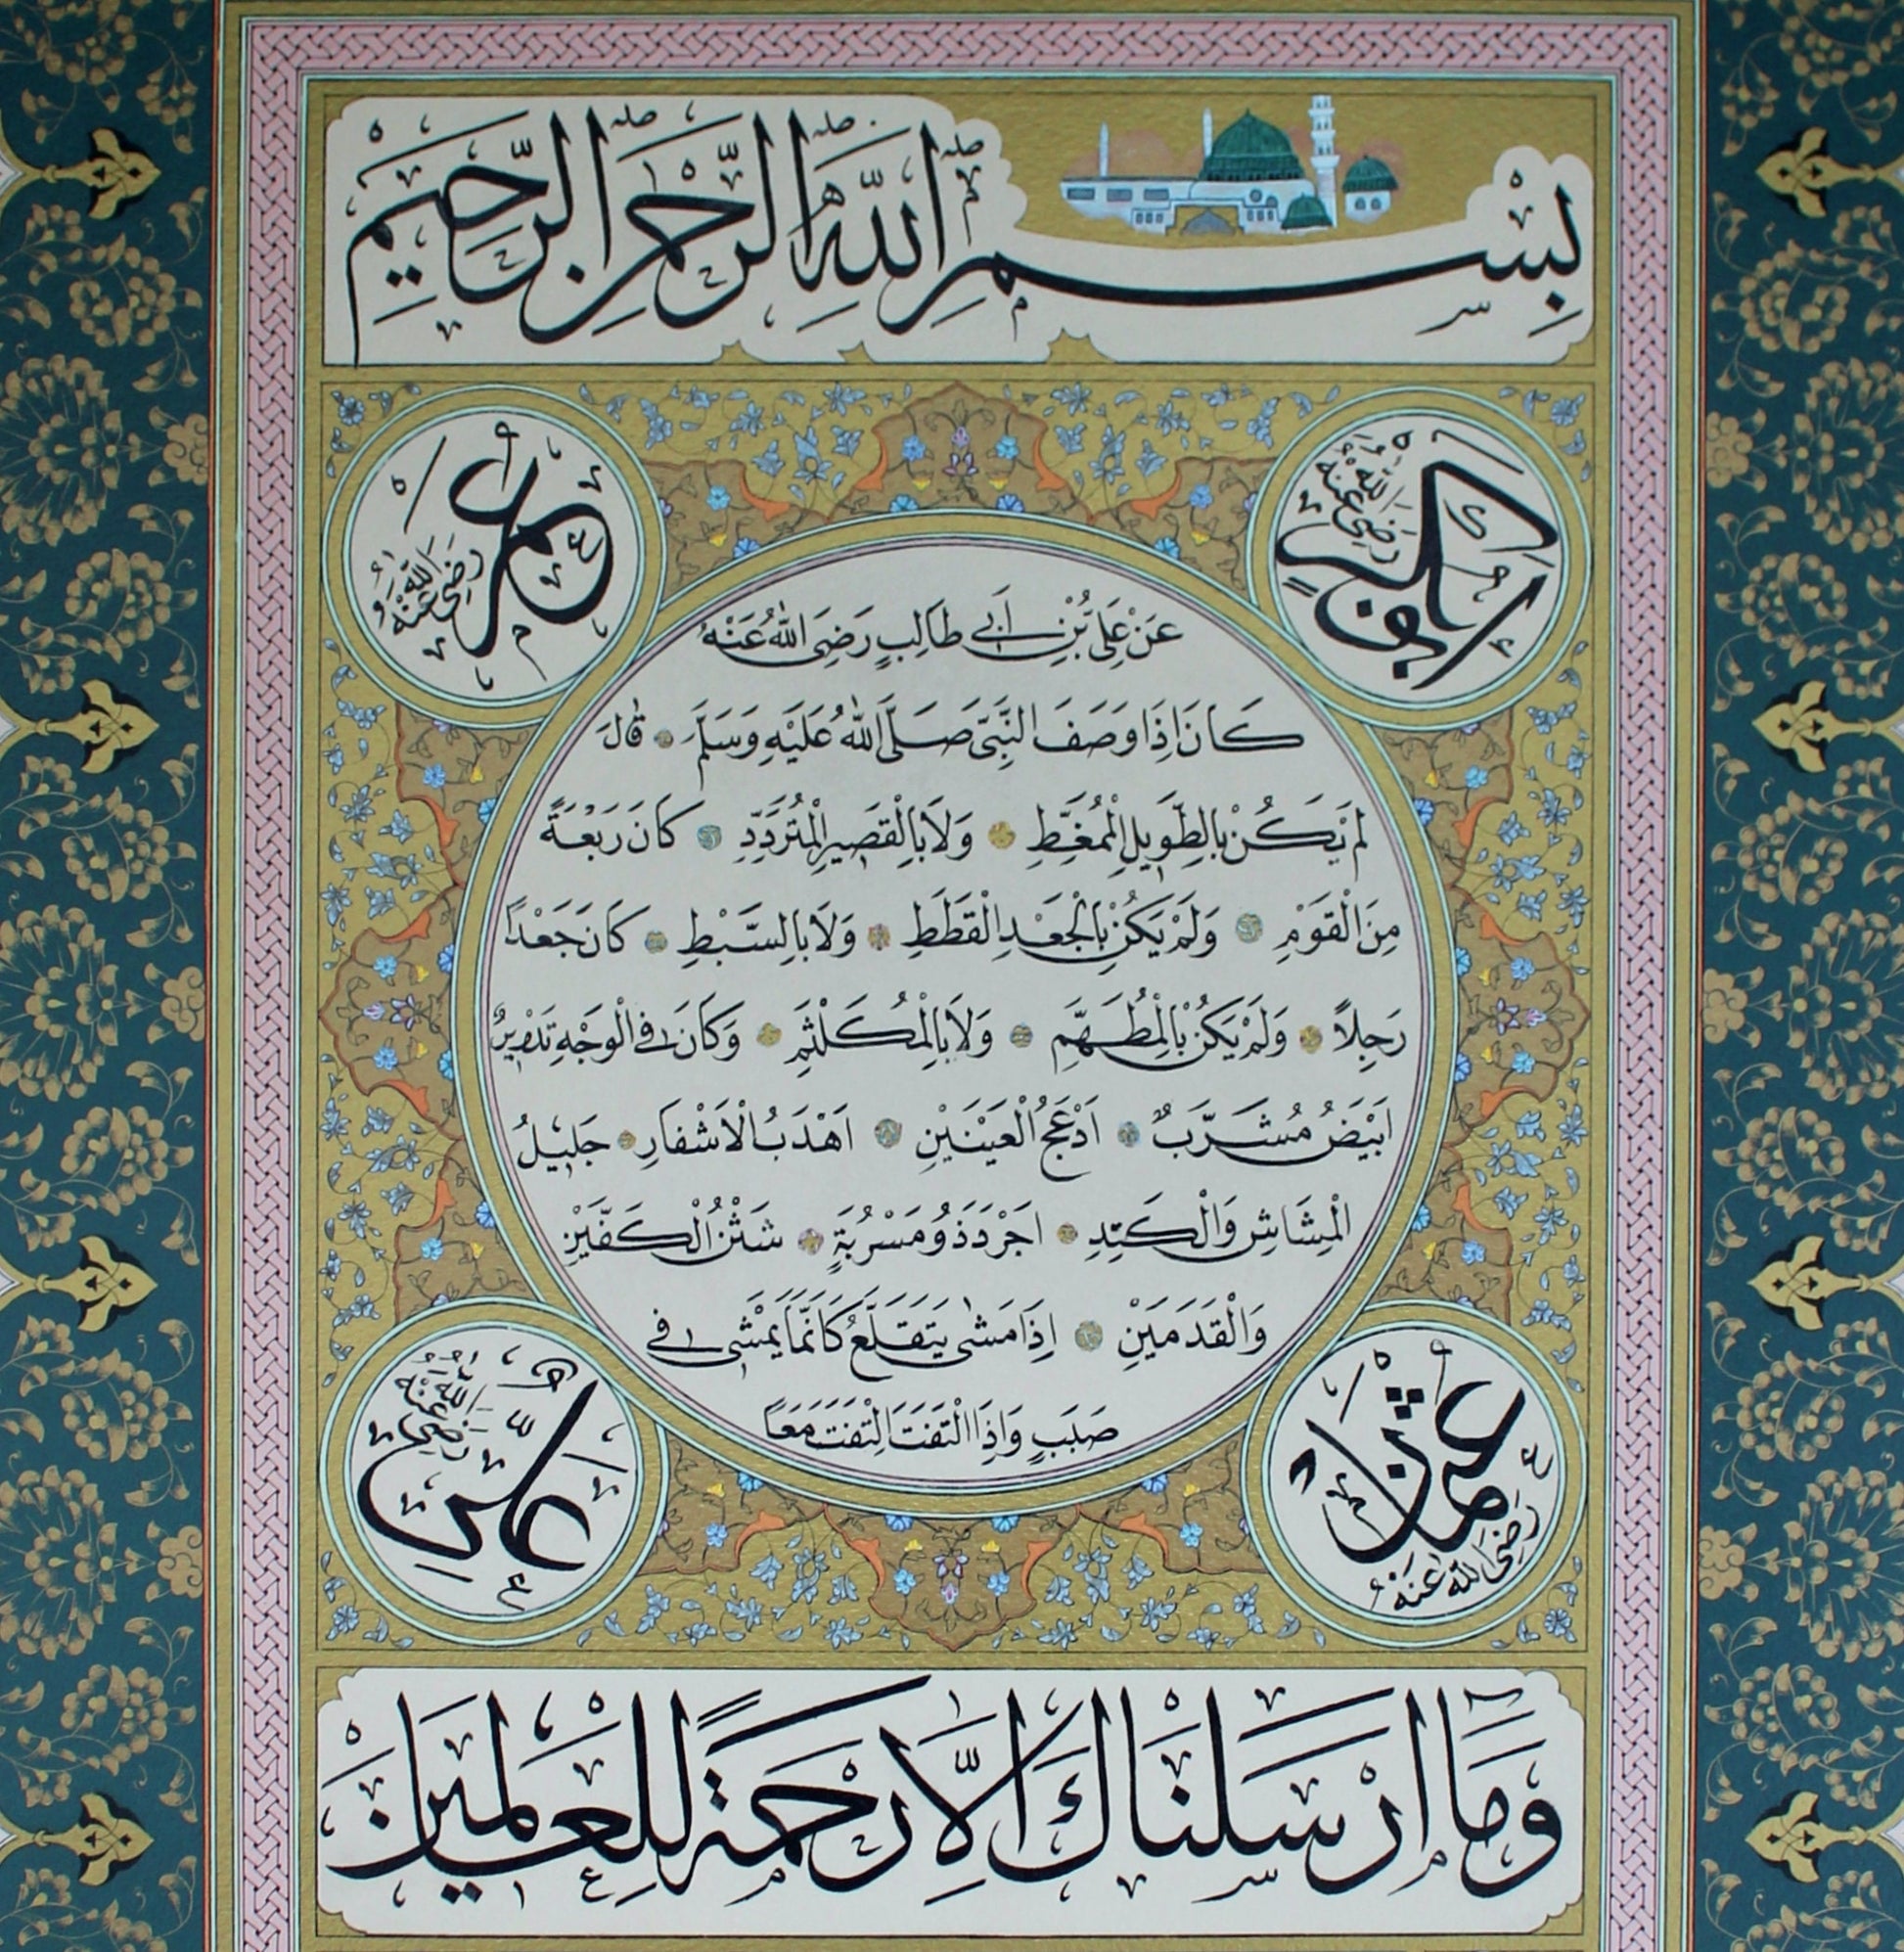 بِسْمِ اللَّهِ الرَّحْمٰنِ الرَّحِيمِ
ابوبكر رضى الله عنه
عمر رضى الله عنه
عَنْ عَلِيِّ بْنِ اَبِى طَالِبٍ رَضِىَ اللهُ عَنْهُ
كَانَ اِذَا وَصَفَ النَّبِىَّ صَلَّى اللهُ عَلَيْهِ وَسَلَّمَ قَالَ
لَمْ يَكُنْ بِالطَّوِيلِ الْمُمَّغِطِ وَلَا بِالْقَصِيرِ الْمُتَرَدِّدِ كَانَ رَبْعَةً
مِنَ الْقَوْمِ وَلَمْ يَكُنْ بِالْجَعْدِ الْقَطَطِ وَلَا بِالسَّبْطِ كَانَ جَعْدًا
رَجِلًا وَلَمْ يَكُنْ بِالْمُطَهَّمِ وَلَا بِالْمُكَلْثَمِ وَكَانَ فِى الْوَجْهِ تَدْوِيرٌ
اَبْيَضُ مُشَرَّبٌ اَدْعَجُ الْعَيْنَيْنِ اَهْدَبُ الْاَشْفَارِ جَلِيلُ
الْمُشَاشِ وَالْكَتَدِ اَجْرَدُ ذُو مَسْرُبَةٍ شَثْنُ الْكَفَّيْنِ
وَالْقَدَمَيْنِ اِذَا مَشٰى يَتَقَلَّعُ كَاَنَّمَا يَمْشِى فِى
صَبَبٍ وَاِذَا الْتَفَتَ اِلْتَفَتَ مَعًا
عثمان رضى الله عنه
على رضى الله عنه
وَمَا اَرْسَلْنَاكَ اِلَّا رَحْمَةً لِلْعَالَمِينَ